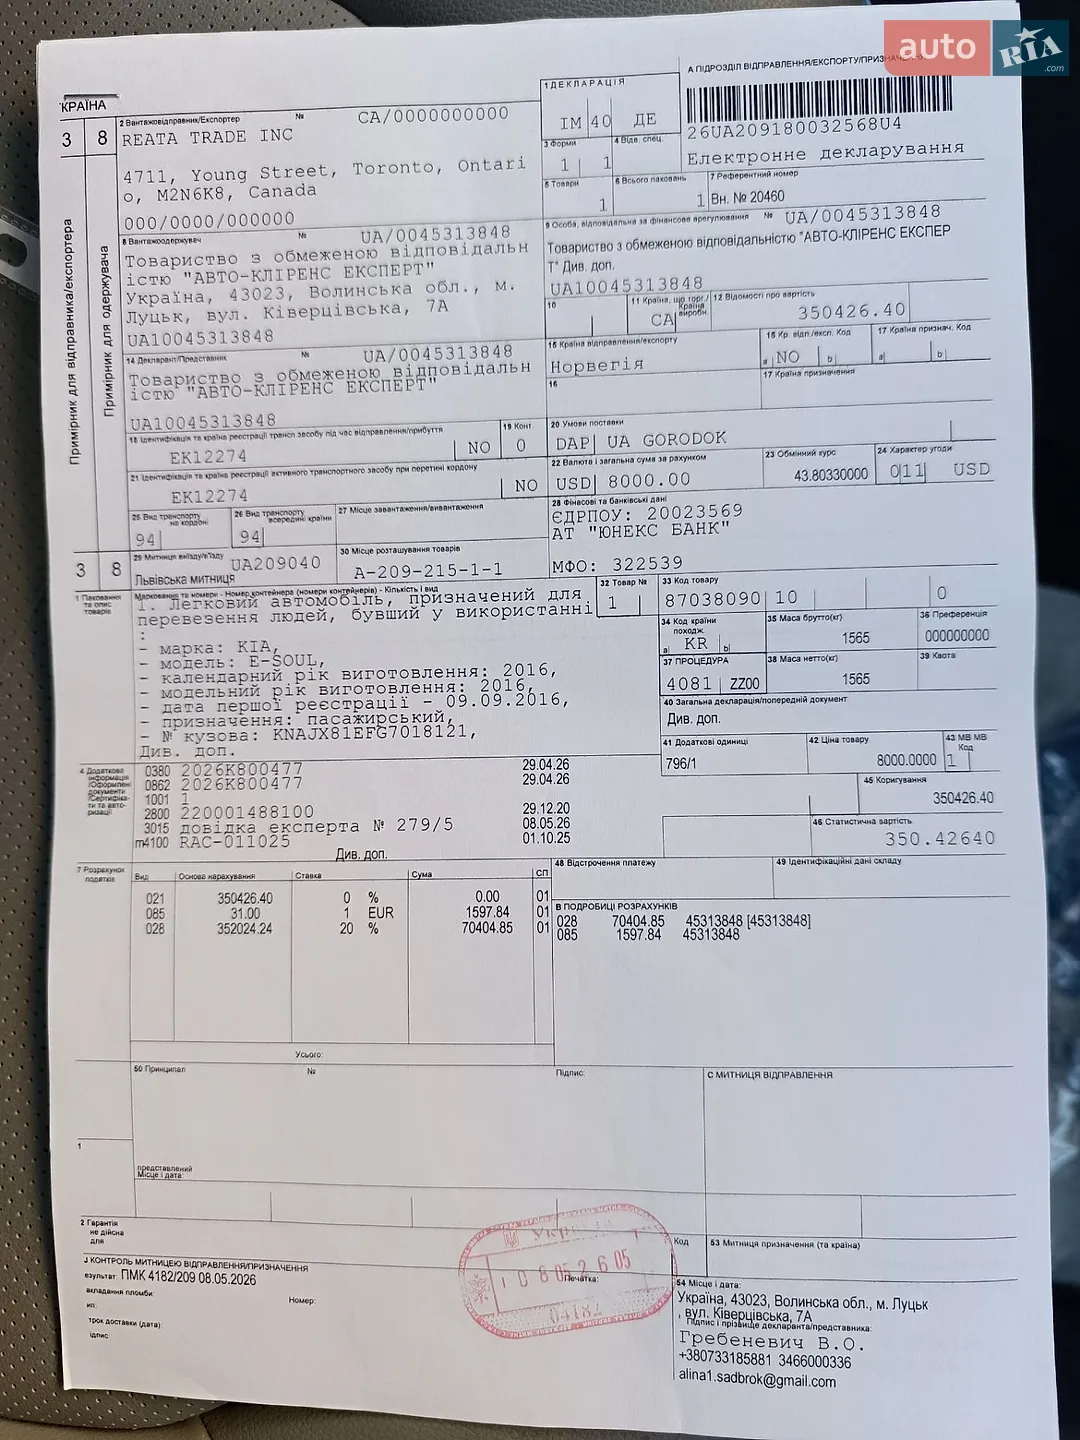 auto RIA .com
КРАЇНА
1 ДЕКЛАРАЦІЯ
А ПІДРОЗДІЛ ВІДПРАВЛЕННЯ/ЕКСПОРТУ/ПРИЗНАЧЕННЯ
3 8
2 Вантажовідправник/Експортер № CA/0000000000
REATA TRADE INC
4711, Young Street, Toronto, Ontari
o, M2N6K8, Canada
000/0000/000000
ІМ 40 ДЕ
26UA209180032568U4
Електронне декларування
3 Форми
1 1
4 Відв. спец.
5 Товари
1
6 Всього паковань
1
7 Референтний номер
Вн. № 20460
Примірник для відправника/експортера
Примірник для одержувача
8 Вантажоодержувач № UA/0045313848
Товариство з обмеженою відповідальн
істю "АВТО-КЛІРЕНС ЕКСПЕРТ"
Україна, 43023, Волинська обл., м.
Луцьк, вул. Ківерцівська, 7А
UA10045313848
9 Особа, відповідальна за фінансове врегулювання № UA/0045313848
Товариство з обмеженою відповідальністю "АВТО-КЛІРЕНС ЕКСПЕР
Т" Див. доп.
UA10045313848
10
11 Країна, що торг./ Країна виробн.
CA
12 Відомості про вартість
350426.40
14 Декларант/Представник № UA/0045313848
Товариство з обмеженою відповідальн
істю "АВТО-КЛІРЕНС ЕКСПЕРТ"
UA10045313848
15 Країна відправлення/експорту
Норвегія
15 Кр. відп./експ. Код
a NO b
17 Країна признач. Код
a b
16
17 Країна призначення
18 Ідентифікація та країна реєстрації трансп засобу під час відправлення/прибуття
EK12274 NO
19 Конт.
0
20 Умови поставки
DAP UA GORODOK
21 Ідентифікація та країна реєстрації активного транспортного засобу при перетині кордону
EK12274 NO
22 Валюта і загальна сума за рахунком
USD 8000.00
23 Обмінний курс
43.80330000
24 Характер угоди
011 USD
25 Вид транспорту на кордоні
94
26 Вид транспорту всередині країни
94
27 Місце завантаження/вивантаження
28 Фінансові та банківські дані
ЄДРПОУ: 20023569
АТ "ЮНЕКС БАНК"
МФО: 322539
3 8
29 Митниця виїзду/в'їзду UA209040
Львівська митниця
30 Місце розташування товарів
А-209-215-1-1
1 Паковання та опис товарів
Маркування та номери - Номер контейнера (номери контейнерів) - Кількість і вид
1. Легковий автомобіль, призначений для
перевезення людей, бувший у використанні
:
- марка: KIA,
- модель: E-SOUL,
- календарний рік виготовлення: 2016,
- модельний рік виготовлення: 2016,
- дата першої реєстрації - 09.09.2016,
- призначення: пасажирський,
- № кузова: KNAJX81EFG7018121,
Див. доп.
32 Товар №
1
33 Код товару
87038090 10 0
34 Код країни походж.
a KR b
35 Маса брутто(кг)
1565
36 Преференція
000000000
37 ПРОЦЕДУРА
4081 ZZ00
38 Маса нетто(кг)
1565
39 Квота
40 Загальна декларація/попередній документ
Див. доп.
41 Додаткові одиниці
796/1
42 Ціна товару
8000.0000
43 МВ МВ Код
1
4 Додаткова інформація
0380 2026K800477 29.04.26
0862 2026K800477 29.04.26
1001 1
2800 220001488100 29.12.20
3015 довідка експерта № 279/5 08.05.26
m4100 RAC-011025 01.10.25
Див. доп.
45 Коригування
350426.40
46 Статистична вартість
350.42640
7 Розрахунок податків
Вид Основа нарахування Ставка Сума СП
021 350426.40 0 % 0.00 01
085 31.00 1 EUR 1597.84 01
028 352024.24 20 % 70404.85 01
Усього:
48 Відстрочення платежу
49 Ідентифікаційні дані складу
В ПОДРОБИЦІ РОЗРАХУНКІВ
028 70404.85 45313848 [45313848]
085 1597.84 45313848
50 Принципал № Підпис:
С МИТНИЦЯ ВІДПРАВЛЕННЯ
1
представлений
Місце і дата:
2 Гарантія
не дійсна
для
Код
53 Митниця призначення (та країна)
J КОНТРОЛЬ МИТНИЦЕЮ ВІДПРАВЛЕННЯ/ПРИЗНАЧЕННЯ
езультат: ПМК 4182/209 08.05.2026
акладання пломби:
Номер:
ип:
трок доставки (дата):
ідпис
Печатка:
54 Місце і дата:
Україна, 43023, Волинська обл., м. Луцьк
, вул. Ківерцівська, 7А
Підпис і прізвище декларанта/представника:
Гребеневич В.О.
+380733185881 3466000336
alina1.sadbrok@gmail.com